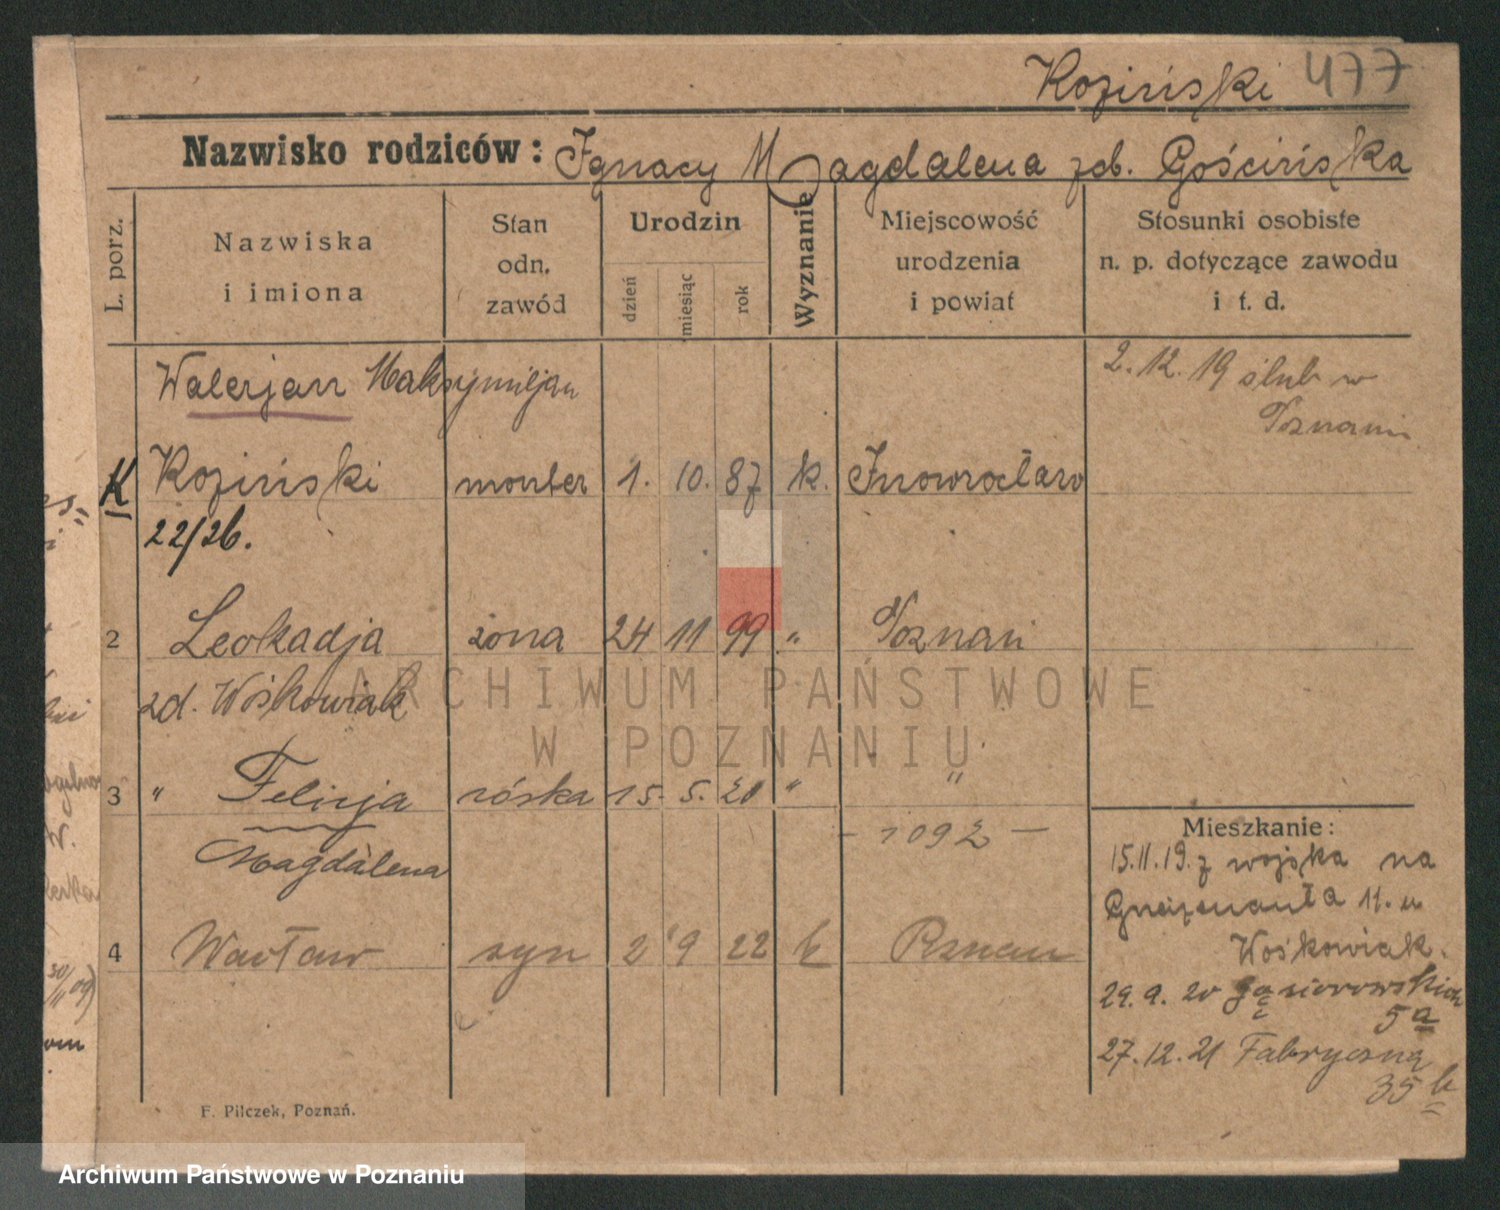 Koziński 477
Nazwisko rodziców: Ignacy Magdalena zd. Gościńska
L. porz.
Nazwiska
i imiona
Stan
odn.
zawód
Urodzin
dzień
miesiąc
rok
Wyznanie
Miejscowość
urodzenia
i powiat
Stosunki osobiste
n. p. dotyczące zawodu
i t. d.
Walerjan Maksymiljan
2. 12. 19 ślub w
Poznaniu
K Koziński monter 1. 10. 87 k. Inowrocław
22/26.
2 Leokadja żona 24 11 99 " Poznań
zd. Wośkowiak
3 " Felicja córka 15. 5. 20 " "
Magdalena
- 1092 -
4 Wacław syn 2 9 22 k Poznań
Mieszkanie:
15.11.19. z wojska na
11. u
Wośkowiak.
29. 9. 20 Gąsiorowskich
5a
27. 12. 21 Fabryczną
35 b
F. Pilczek, Poznań.
ARCHIWUM PAŃSTWOWE
W POZNANIU
Archiwum Państwowe w Poznaniu